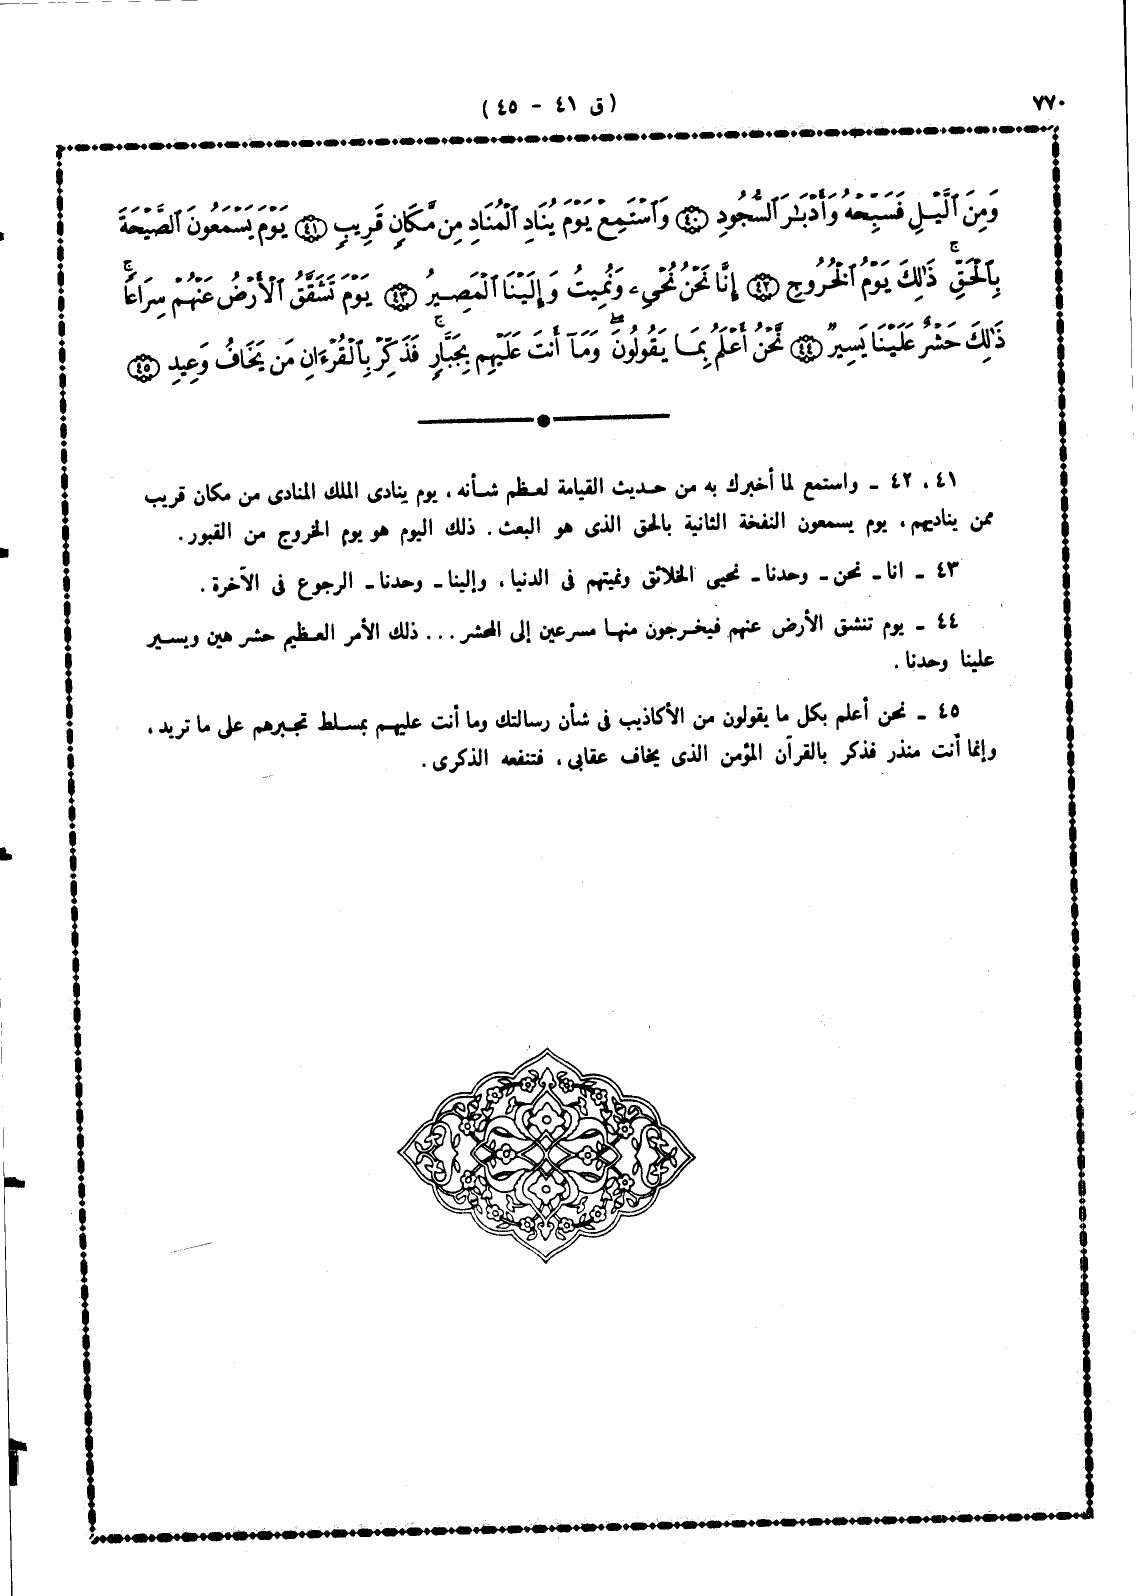 ٧٧٠
(ق ٤١ - ٤٥)
وَمِنَ ٱلَّيْلِ فَسَبِّحْهُ وَأَدْبَٰرَ ٱلسُّجُودِ ٤٠ وَٱسْتَمِعْ يَوْمَ يُنَادِ ٱلْمُنَادِ مِن مَّكَانٍ قَرِيبٍ ٤١ يَوْمَ يَسْمَعُونَ ٱلصَّيْحَةَ
بِٱلْحَقِّ ۚ ذَٰلِكَ يَوْمُ ٱلْخُرُوجِ ٤٢ إِنَّا نَحْنُ نُحْيِۦ وَنُمِيتُ وَإِلَيْنَا ٱلْمَصِيرُ ٤٣ يَوْمَ تَشَقَّقُ ٱلْأَرْضُ عَنْهُمْ سِرَاعًا ۚ
ذَٰلِكَ حَشْرٌ عَلَيْنَا يَسِيرٌ ٤٤ نَّحْنُ أَعْلَمُ بِمَا يَقُولُونَ ۖ وَمَآ أَنتَ عَلَيْهِم بِجَبَّارٍ ۚ فَذَكِّرْ بِٱلْقُرْءَانِ مَن يَخَافُ وَعِيدِ ٤٥
٤١، ٤٢ ـ واستمع لما أخبرك به من حديث القيامة لعظم شأنه، يوم ينادى الملك المنادى من مكان قريب
ممن يناديهم، يوم يسمعون النفخة الثانية بالحق الذى هو البعث. ذلك اليوم هو يوم الخروج من القبور.
٤٣ ـ انا ـ نحن ـ وحدنا ـ نحيى الخلائق ونميتهم فى الدنيا، وإلينا ـ وحدنا ـ الرجوع فى الآخرة.
٤٤ ـ يوم تنشق الأرض عنهم فيخرجون منها مسرعين إلى المحشر... ذلك الأمر العظيم حشر هين ويسير
علينا وحدنا.
٤٥ ـ نحن أعلم بكل ما يقولون من الأكاذيب فى شأن رسالتك وما أنت عليهم بمسلط تجبرهم على ما تريد،
وإنما أنت منذر فذكر بالقرآن المؤمن الذى يخاف عقابى، فتنفعه الذكرى.